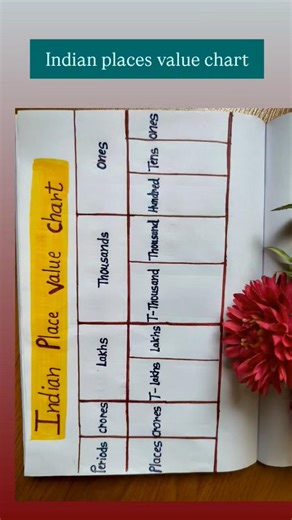 Indian places value chart
Indian Place Value Chart
Periods Crores Lakhs Thousands Ones
Places Crores T-Lakhs Lakhs T-Thousand Thousand Hundred Tens Ones